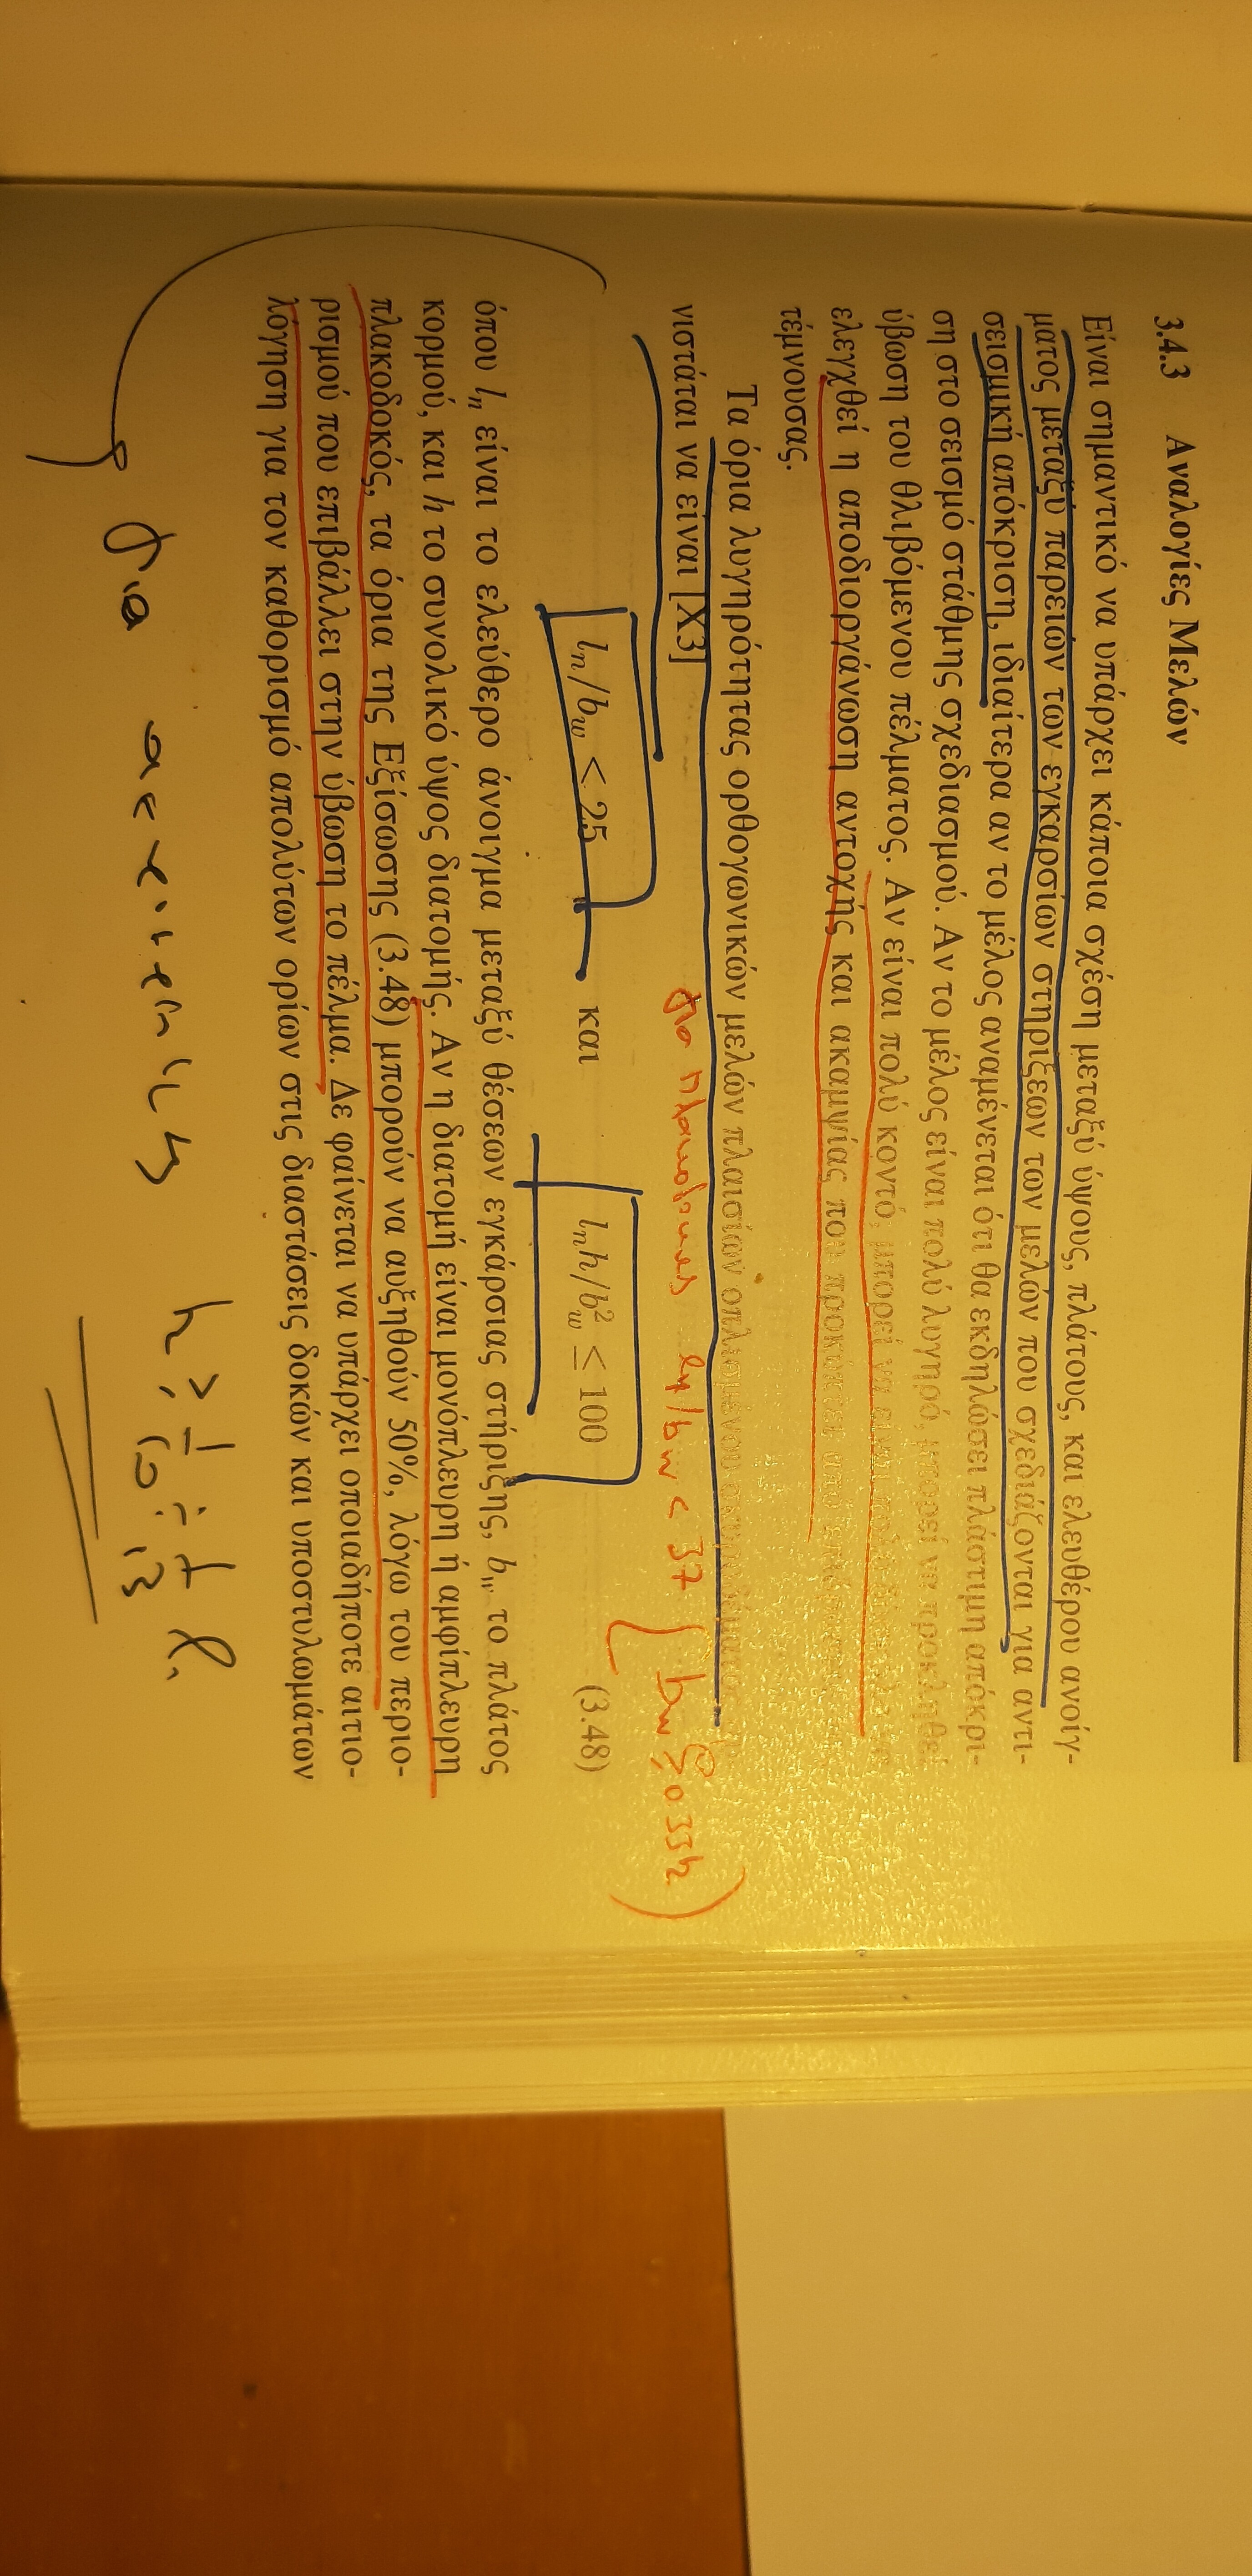 3.4.3 Αναλογίες Μελών
Είναι σημαντικό να υπάρχει κάποια σχέση μεταξύ ύψους, πλάτους, και ελευθέρου ανοίγ-
ματος μεταξύ παρειών των εγκαρσίων στηρίξεων των μελών που σχεδιάζονται για αντι-
σεισμική απόκριση, ιδιαίτερα αν το μέλος αναμένεται ότι θα εκδηλώσει πλάστιμη απόκρι-
ση στο σεισμό στάθμης σχεδιασμού. Αν το μέλος είναι πολύ λυγηρό, μπορεί να προκληθεί
ύβωση του θλιβόμενου πέλματος. Αν είναι πολύ κοντό, μπορεί να είναι
ελεγχθεί η αποδιοργάνωση αντοχής και ακαμψίας που προκύπτει από
τέμνουσας.
Τα όρια λυγηρότητας ορθογωνικών μελών πλαισίων οπλισμένου
νιστάται να είναι [X3]
για πλακοδοκους ln/bw < 37 (bw ≥ 0.35h)
lₙ/b_w < 25 και lₙh/b²_w ≤ 100 (3.48)
όπου lₙ είναι το ελεύθερο άνοιγμα μεταξύ θέσεων εγκάρσιας στήριξης, b_w το πλάτος
κορμού, και h το συνολικό ύψος διατομής. Αν η διατομή είναι μονόπλευρη ή αμφίπλευρη
πλακοδοκός, τα όρια της Εξίσωσης (3.48) μπορούν να αυξηθούν 50%, λόγω του περιο-
ρισμού που επιβάλλει στην ύβωση το πέλμα. Δε φαίνεται να υπάρχει οποιαδήποτε αιτιο-
λόγηση για τον καθορισμό απολύτων ορίων στις διαστάσεις δοκών και υποστυλωμάτων
για